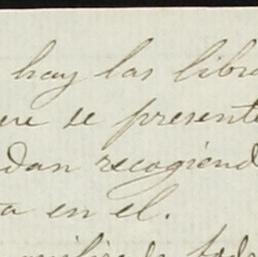 hay las libr
ue se present
dan recogiend
a en el.